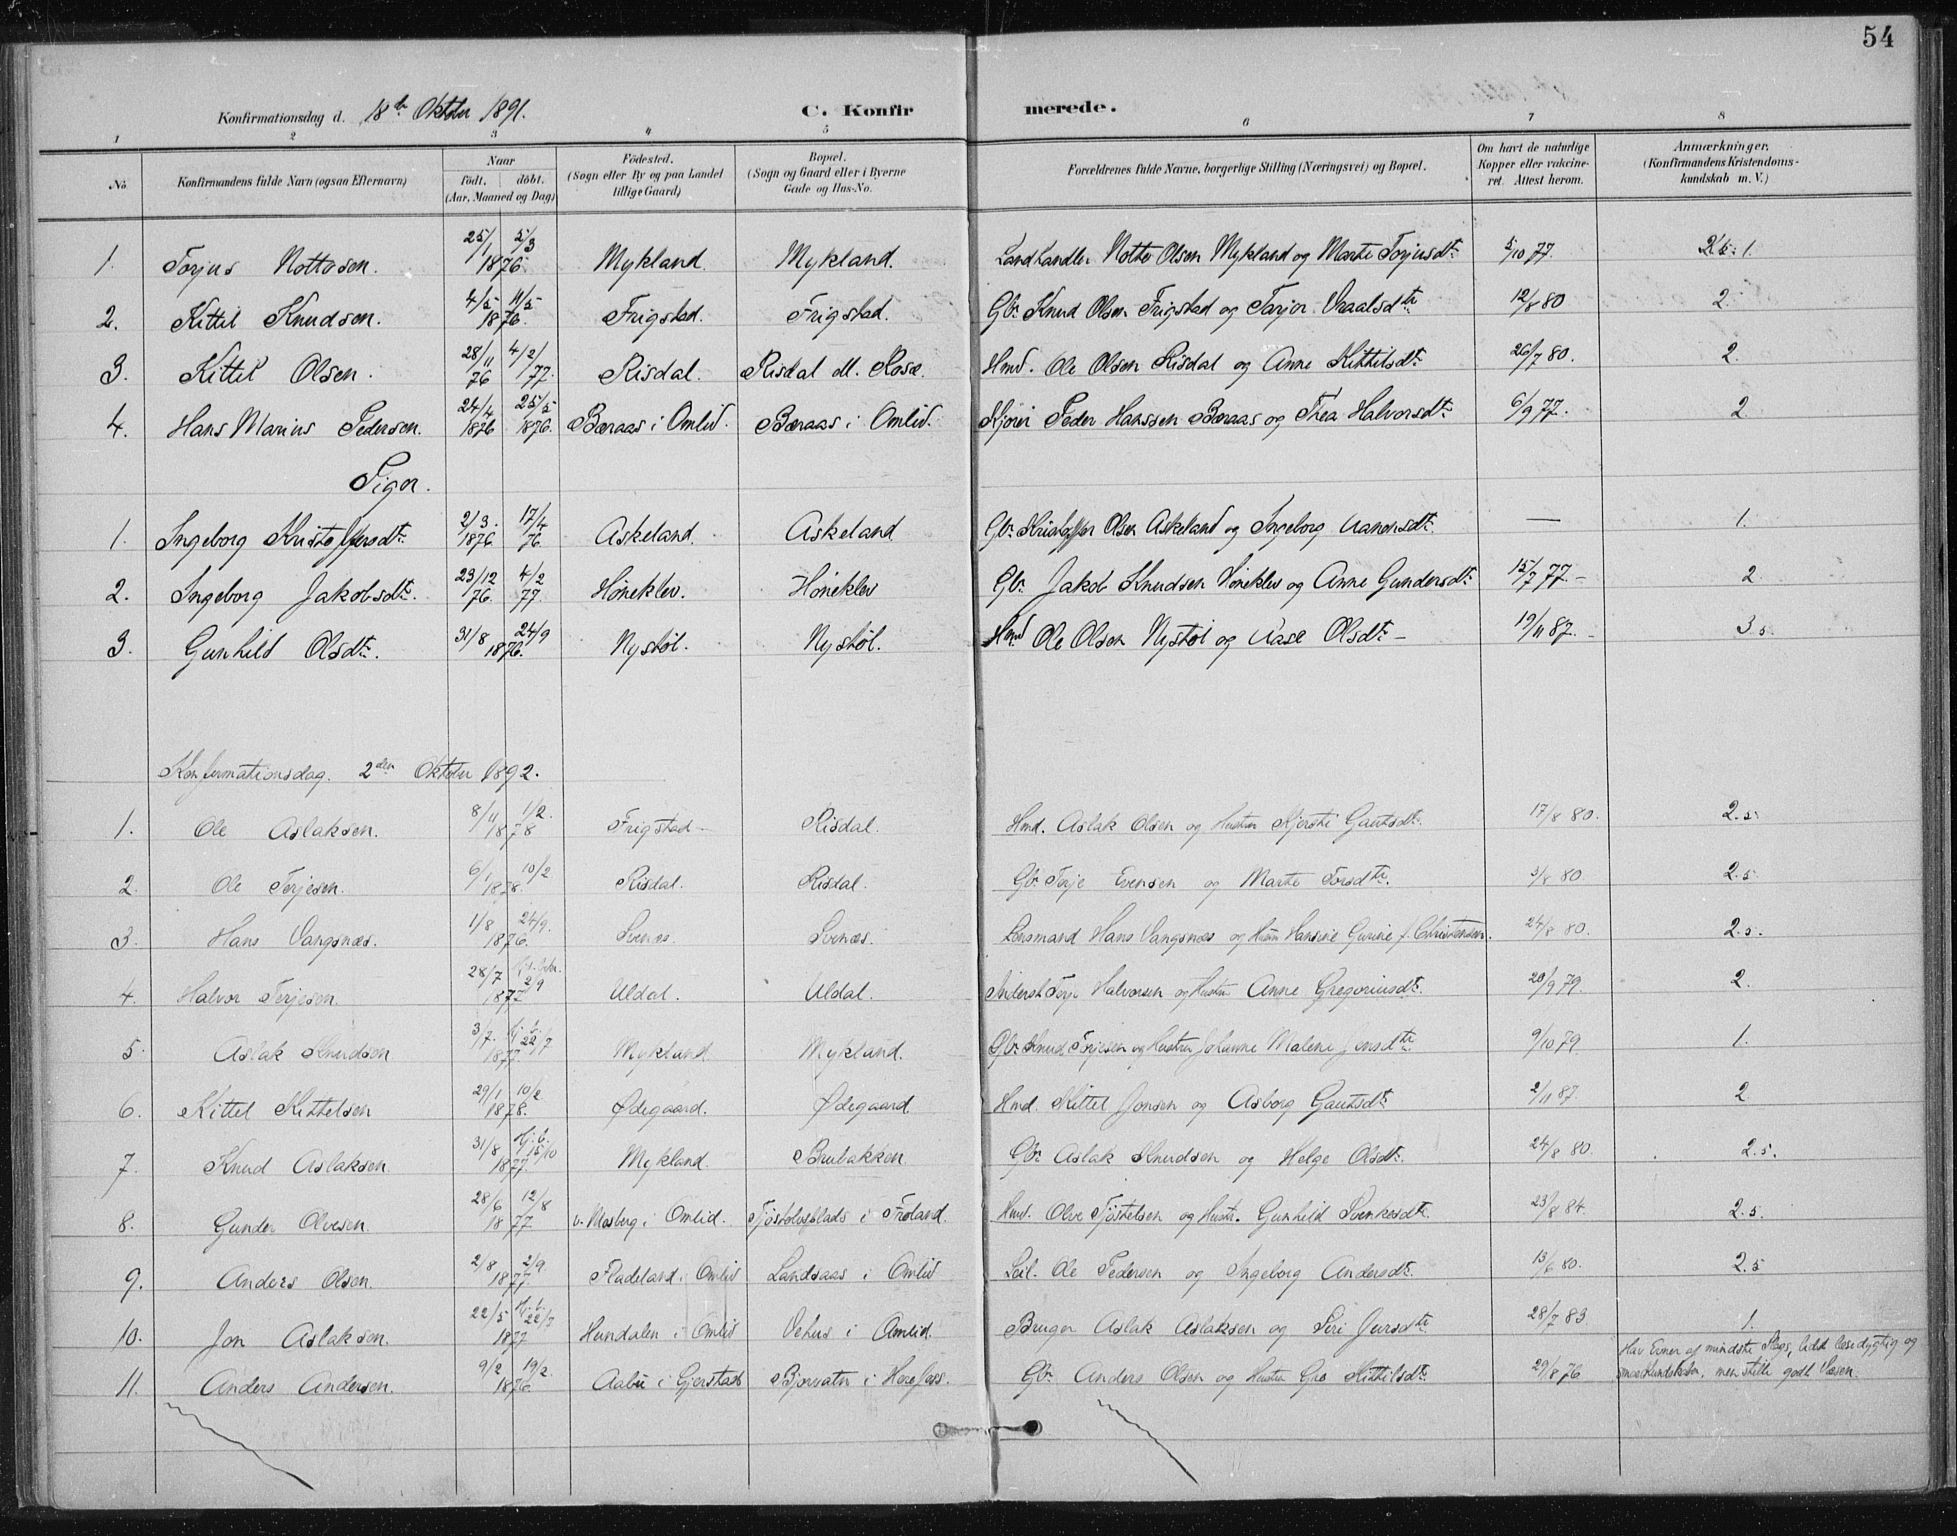 54
Konfirmationsdag d. 18de Oktober 1891. C. Konfirmerede.
1 2 3 4 5 6 7 8
No Konfirmandens fulde Navn (ogsaa Efternavn) Naar født, døbt. (Aar, Maaned og Dag) Fødested. (Sogn eller By og paa Landet tillige Gaard) Bopæl. (Sogn og Gaard eller i Byerne Gade og Hus-No. Forældrenes fulde Navne, borgerlige Stilling (Næringsvei) og Bopæl. Om havt de naturlige Kopper eller vakcineret. Attest herom. Anmærkninger. (Konfirmandens Kristendomskundskab m. V.)
1. Torjus Nottosen. 25/1 5/3 1876. Mykland. Mykland. Landhandler Notto Olsen Mykland og Marte Torjusdtr 5/10 77. 1.
2. Kittil Knudsen. 4/5 11/5 1876. Frigstad. Frigstad. Gbr Knud Olsen Frigstad og Torjer 12/8 80 2.
3. Kittel Olsen. 28/11 76 4/2 77. Risdal. Risdal Hmd. Ole Olsen Risdal og Anne Kittilsdtr 26/7 80. 2.
4. Hans Marius Pedersen. 24/4 1876 25/5 1876. Baraas i Omlid. Baraas i Omlid. Peder Hanssen Baraas og Thea Halvorsdtr 6/9 77. 2
Piger.
1. Ingeborg Kristoffersdtr. 2/3. 1876 17/4 76. Askeland. Askeland. Gbr Kristoffer Olsen Askeland og Ingeborg — 1.
2. Ingeborg Jakobsdtr. 23/12 76. 4/2 77. Høneklev. Høneklev Gbr Jakob Knudsen Høneklev og Anne Gundersdtr 15/7 77. – 2
3. Gunhild Olsdtr. 31/8 24/9 1876. Nystøl. Nystøl. Hmd Ole Olsen Nystøl og Aase Olsdtr – 19/11 87. – 3.5.
Konfirmationsdag. 2den Oktober 1892.
1. Ole Aslaksen. 8/11 1/2. 1878 Frigstad – Risdal. Hmd. Aslak Olsen og Hustru Kjersti Gautsdtr. 17/8 80. 2.5.
2. Ole Terjesen. 6/1 10/2 1878. Risdal. Risdal. Gbr Terje Evensen og Marte Torsdtr. 3/8 80. 2.5.
3. Hans Vangsnæs. 1/8 24/9. 1876. Svenæs. Svenæs. Lensmand Hans Vangsnæs og Hansine Gurine f. Christensen. 24/8 80. 2.5.
4. Halvor Terjesen. 28/7 2/9 1877 Uldal. Uldal. Terje Halvorsen og Hustru Anne Gregoriusdtr. 20/9 79. 2.
5. Aslak Knudsen 3/7. Hj. d. 22/7 1877 Mykland Mykland. Gbr Knud Terjesen og Hustru Johanne Malene Jensdtr. 9/10 79. 1.
6. Kittel Kittelsen 29/1 10/2 1878. Ødegaard. Ødegaard Hmd. Kittel Jonsen og Asborg Gautsdtr 2/11 87. 2
7. Knud Aslaksen. 31/8 Hj. d. 15/10 1877. Mykland. Brubakken. Gbr Aslak Knudsen og Helge Olsdtr. 24/8 80. 2.5.
8. Gunder Olvesen. 28/6 12/8 1877 v. Mosberg i Omlid. Tjøstolvsplads i Froland. Hmd. Olve Tjøstelsen og Hustr. Gunhild Svenkesdtr. 23/8 84. 2.5.
9. Anders Olsen. 2/8 2/9. 1877. Fladeland i Omlid Landsaas i Omlid Leil. Ole Pedersen og Ingeborg Andersdtr. 13/6 80. 2.5
10. Jon Aslaksen. 22/5 Hj. d. 22/7 1877 Hundalen i Omlid Vehus i Omlid. Bruger Aslak Aslaksen og Siri 28/7 83. 1.
11. Anders Andersen. 9/2 19/2. 1876. Aabø i Gjerstad Bjorvatn i Herefoss. Gbr Anders Olsen og Hustru Gro Kittilsdtr. 29/8 76 Har Evner af mindste Slags, lidt læsedygtig og smaa Kundskaber, men stille godt Væsen.